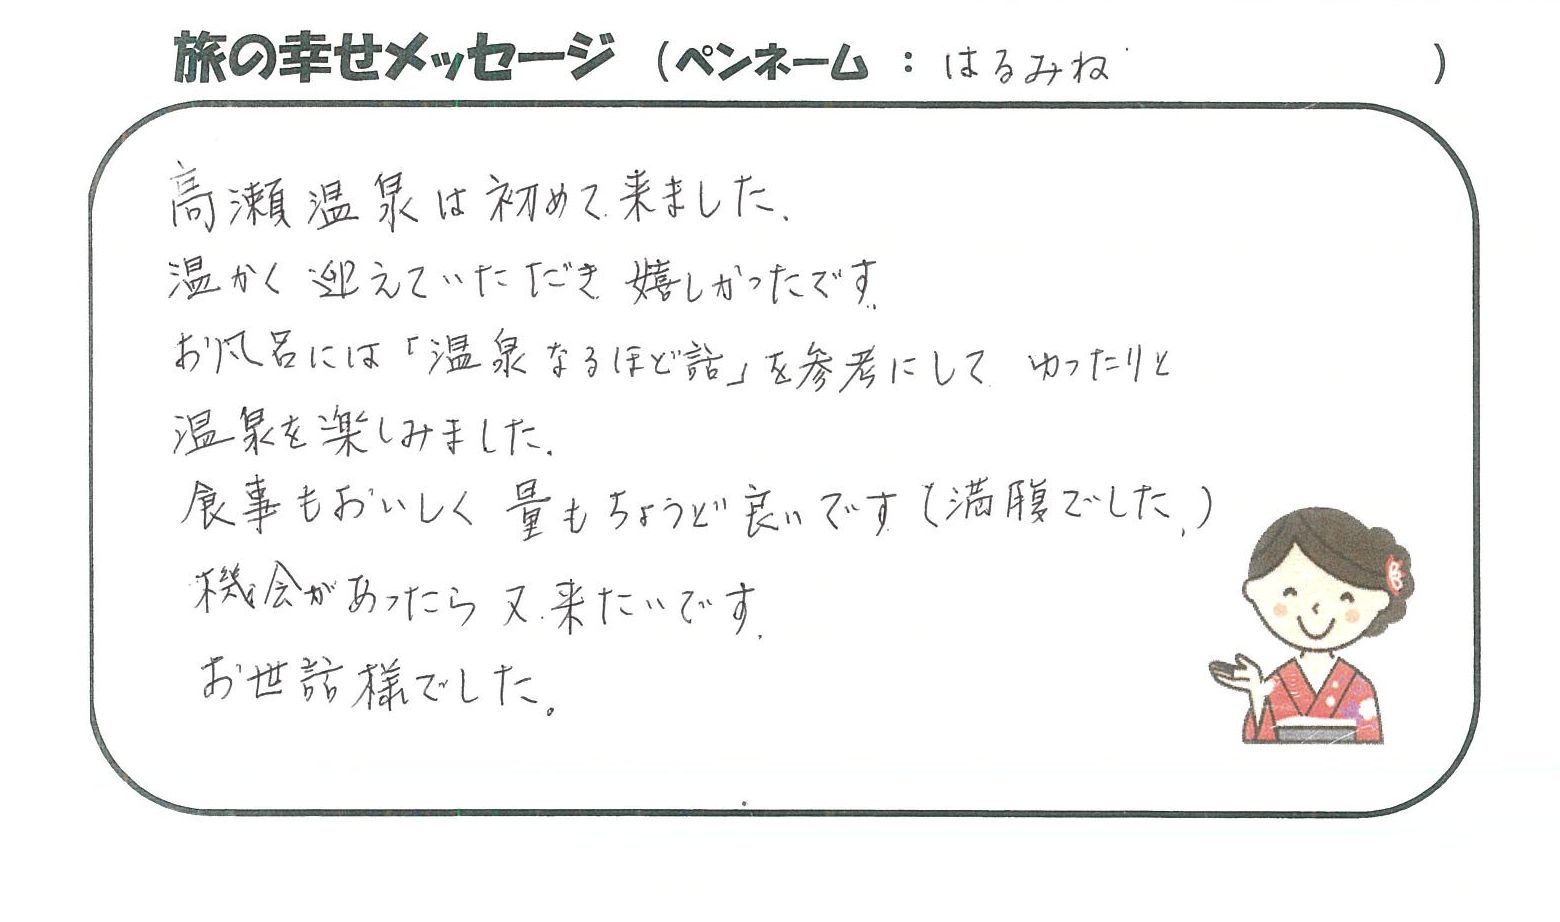 旅の幸せメッセージ (ペンネーム : はるみね )
高瀬温泉は初めて来ました.
温かく迎えていただき嬉しかったです.
お風呂には「温泉なるほど話」を参考にして ゆったりと
温泉を楽しみました.
食事もおいしく量もちょうど良いです(満腹でした.)
機会があったら又来たいです.
お世話様でした。